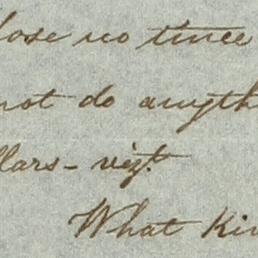 lose no time
not do anyth
llars - vizt.
What Kin